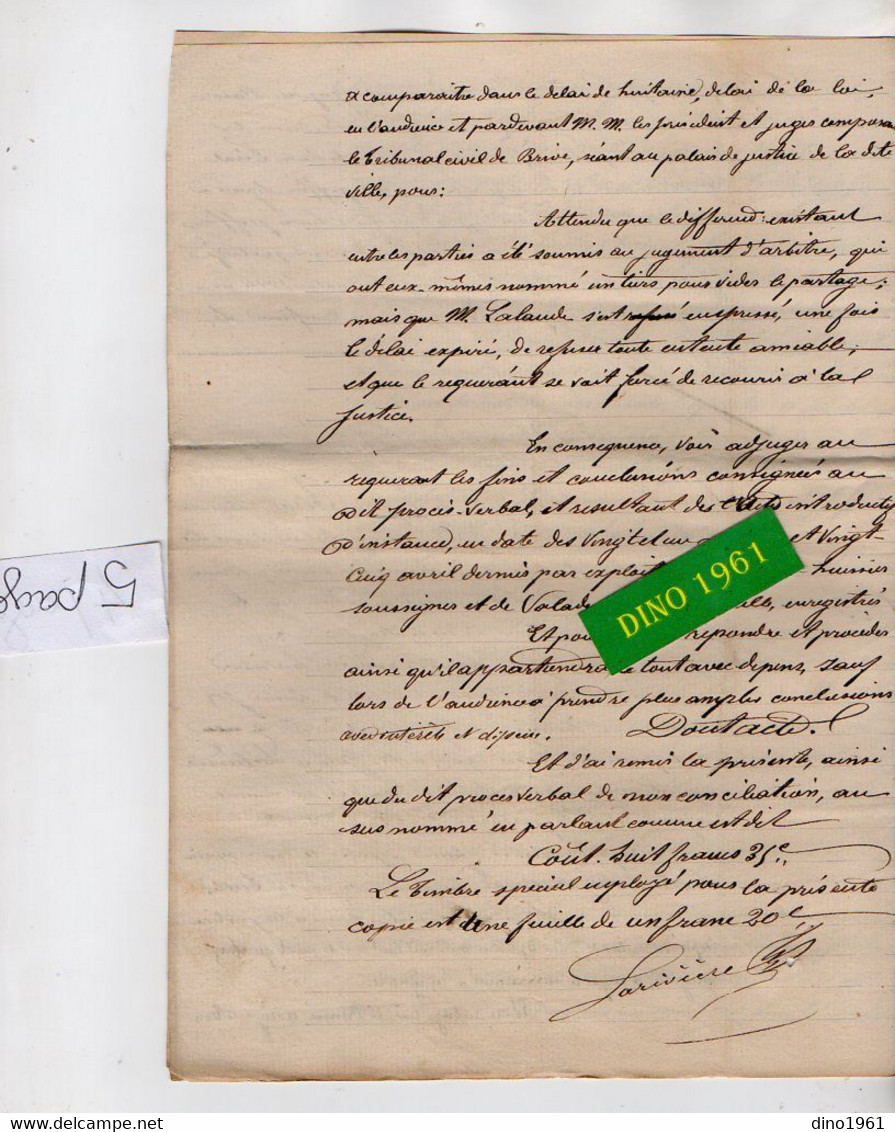 a comparaitre dans le délai de huitaine, délai de la loi,
en l'audience et pardevant M. M. les président et juges composa
le Tribunal civil de Brive, séant au palais de justice de la dite
ville, pour:
Attendu que le differend existant
entre les parties a été soumis au jugement d'arbitre, qui
ont eux-mêmes nommé un tiers pour vider le partage;
mais que M. Lalande s'est refusé empressé, une fois
le délai expiré, de refuser toute entente amiable,
et que le requérant se voit forcé de recourir à la
Justice.
En consequence, voir adjuger au
requerant les fins et conclusions consignées au
dit procès-verbal, et resultant des Actes introductif
d'instance, en date des vingt et un et vingt-
cinq avril dernier par exploit huissier
soussignés et de Valad enregistrés
Et pou repondre et procéder
ainsi qu'il appartiendra le tout avec depens, sauf
lors de l'audience à prendre plus amples conclusions
avec intérêts et dépens. Dont acte.
Et j'ai remis la présente, ainsi
que du dit proces verbal de non conciliation, au
sus nommé en parlant comme est dit
Coût. huit francs 35c.
Le Timbre special employé pour la présente
copie est d'une feuille de un franc 20c
Larivière
DINO 1961
5 page
dino1961